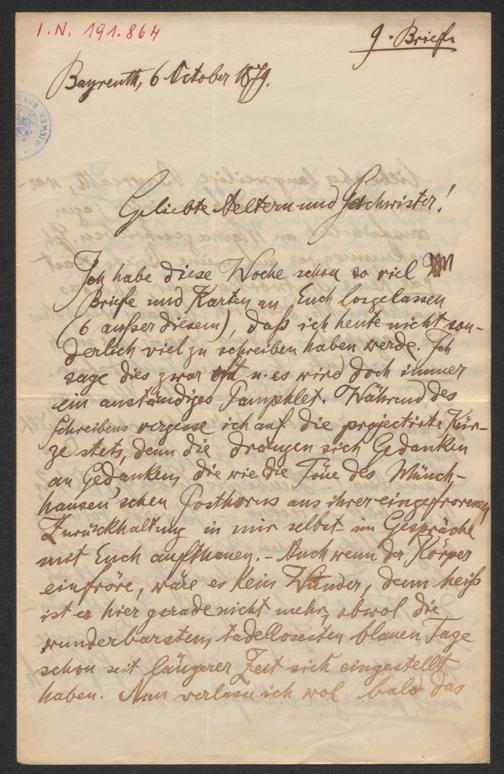 I.N. 191.864
9. Brief.
Bayreuth, 6 October 1879.
Geliebte Aeltern und Geschwister!
Ich habe diese Woche schon so viel
Briefe und Karten an Euch losgelassen
(6 außer diesem), daß ich heute nicht son-
derlich viel zu schreiben haben werde. Ich
sage dies zwar oft u. es wird doch immer
ein anständiges Pamphlet. Während des
Schreibens vergesse ich auf die projectirte Kür-
ze stets, denn die drängen sich Gedanken
an Gedanken, die wie die Töne des Münch-
hausen'schen Posthorns aus ihrer eingefrorenen
Zurückhaltung in mir selbst im Gespräche
mit Euch aufthauen. – Auch wenn der Körper
einfröre, wäre es kein Wunder, denn heiß
ist es hier gerade nicht mehr, obwol die
wunderbarsten, tadellosesten blauen Tage
schon seit längerer Zeit sich eingestellt
haben. Nun verlasse ich wol bald das